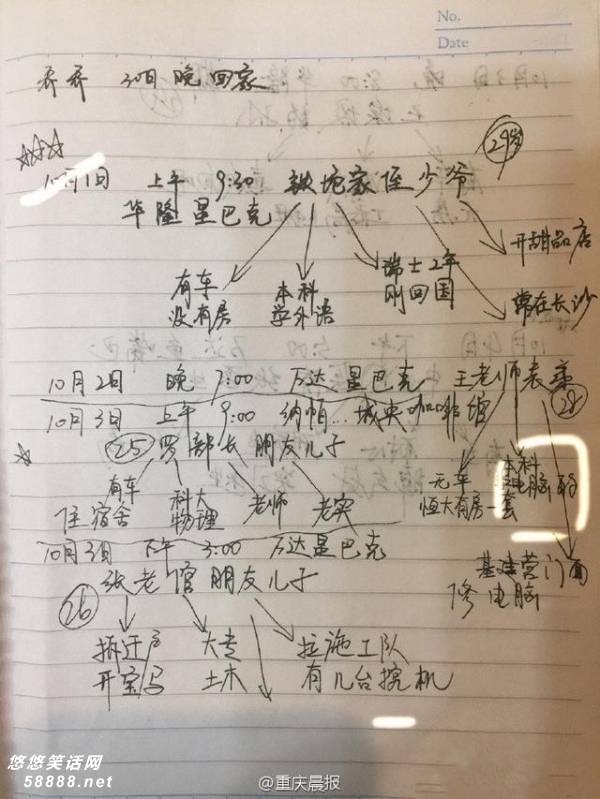 No.
Date
乔乔 30日晚回家
10月1日 上午 9:30 家侄少爷 29岁
华隆星巴克
有车
没有房
本科
学外语
瑞士2年
刚回国
开甜品店
常在长沙
10月2日 晚 7:00 万达星巴克 王老师表亲 28
10月3日 上午 9:00 纳帕...城央咖啡馆
25 罗部长朋友儿子
有车
住宿舍
科大
物理
老师
老实
无车
恒大有房一套
本科
电脑
基建营门面
修电脑
10月3日 下午 3:00 万达星巴克
26 张老馆朋友儿子
拆迁户
开宝马
大专
土木
拉施工队
有几台挖机
悠悠笑话网
58888.net
@重庆晨报